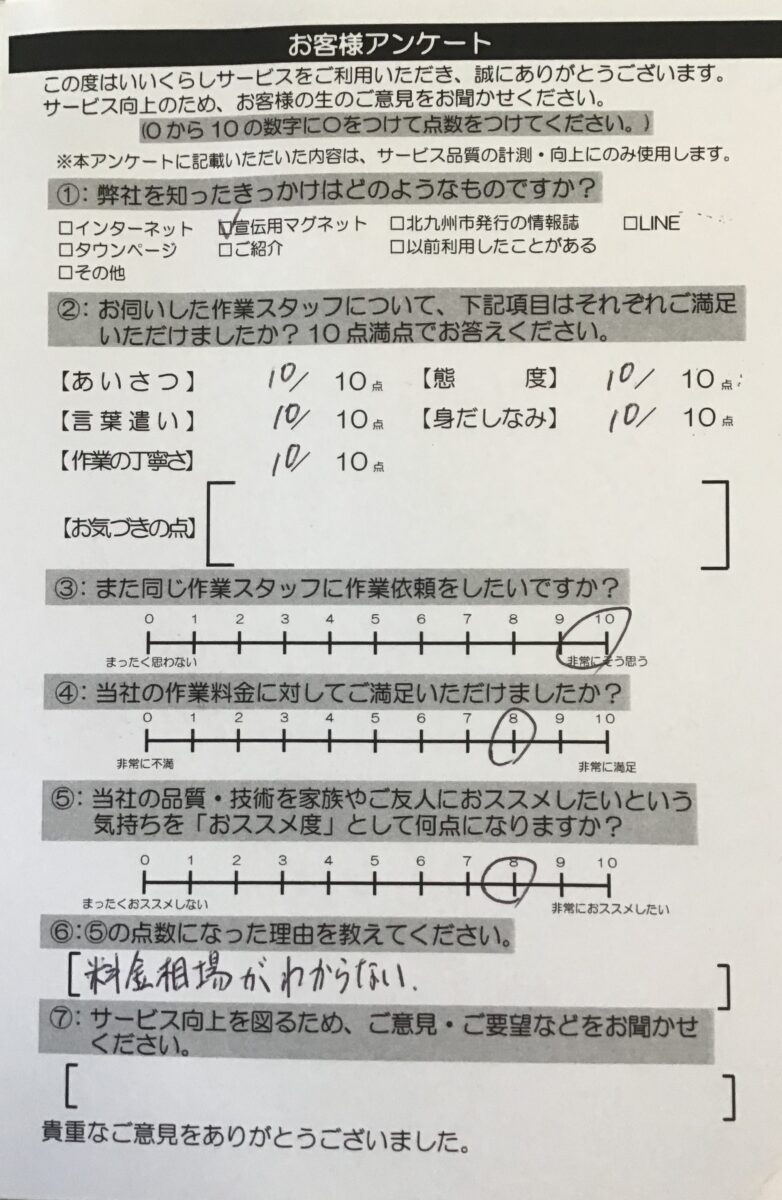 お客様アンケート
この度はいいくらしサービスをご利用いただき、誠にありがとうございます。
サービス向上のため、お客様の生のご意見をお聞かせください。
(0から10の数字に〇をつけて点数をつけてください。)
※本アンケートに記載いただいた内容は、サービス品質の計測・向上にのみ使用します。
①：弊社を知ったきっかけはどのようなものですか？
□インターネット ☑宣伝用マグネット □北九州市発行の情報誌 □LINE
□タウンページ □ご紹介 □以前利用したことがある
□その他
②：お伺いした作業スタッフについて、下記項目はそれぞれご満足
いただけましたか？10点満点でお答えください。
【あいさつ】 10/ 10点 【態 度】 10/ 10点
【言葉遣い】 10/ 10点 【身だしなみ】 10/ 10点
【作業の丁寧さ】 10/ 10点
【お気づきの点】
③：また同じ作業スタッフに作業依頼をしたいですか？
0 1 2 3 4 5 6 7 8 9 10
まったく思わない 非常にそう思う
④：当社の作業料金に対してご満足いただけましたか？
0 1 2 3 4 5 6 7 8 9 10
非常に不満 非常に満足
⑤：当社の品質・技術を家族やご友人におススメしたいという
気持ちを「おススメ度」として何点になりますか？
0 1 2 3 4 5 6 7 8 9 10
まったくおススメしない 非常におススメしたい
⑥：⑤の点数になった理由を教えてください。
[料金相場がわからない. ]
⑦：サービス向上を図るため、ご意見・ご要望などをお聞かせ
ください。
貴重なご意見をありがとうございました。